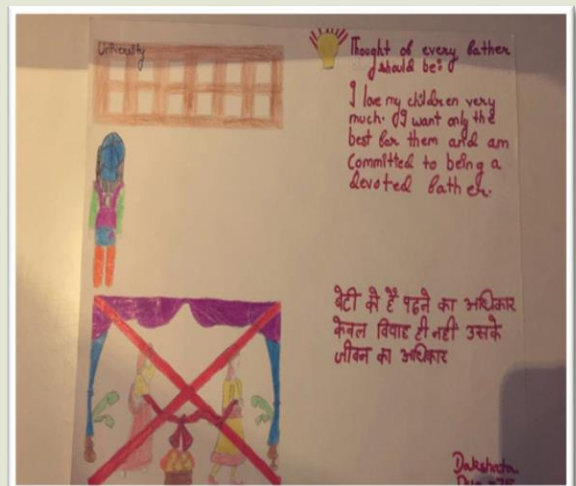 University
Thought of every father
should be:
I love my children very
much. I want only the
best for them and am
committed to being a
devoted father.
बेटी को है पढ़ने का अधिकार
केवल विवाह ही नहीं उसके
जीवन का अधिकार
Dakshata